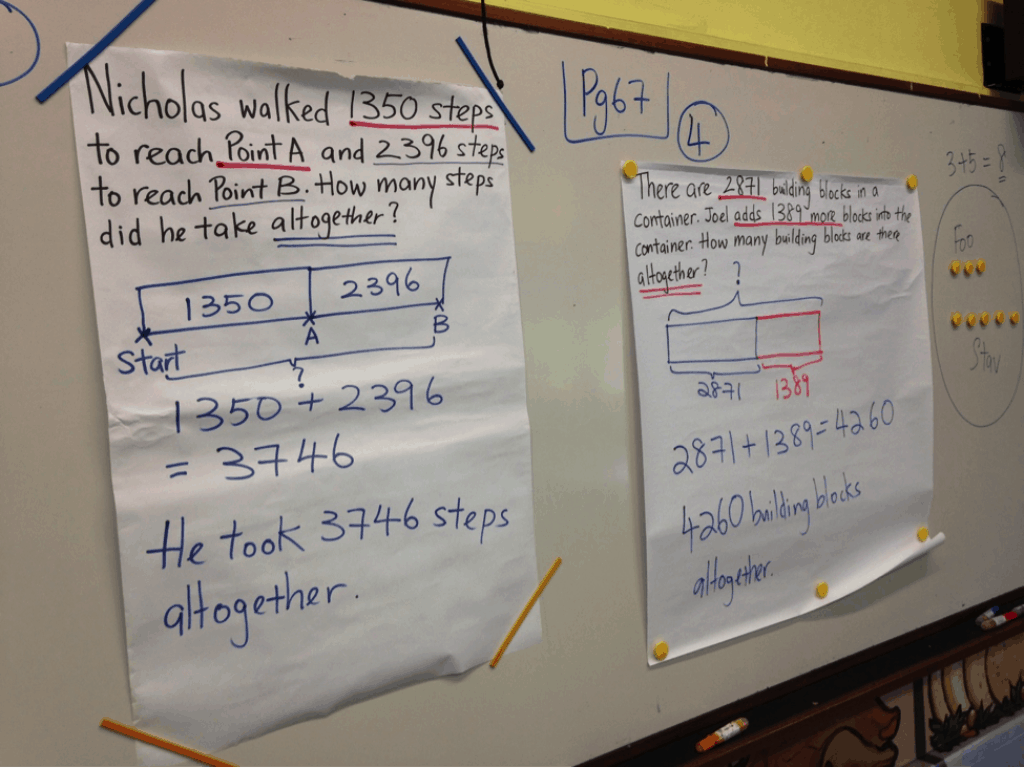 Nicholas walked 1350 steps
to reach Point A and 2396 steps
to reach Point B. How many steps
did he take altogether?
1350
2396
A
B
Start
?
1350 + 2396
= 3746
He took 3746 steps
altogether.
Pg67
4
There are 2871 building blocks in a
container. Joel adds 1389 more blocks into the
container. How many building blocks are there
altogether?
?
2871
1389
2871+1389=4260
4260 building blocks
altogether.
3+5=8
Foo